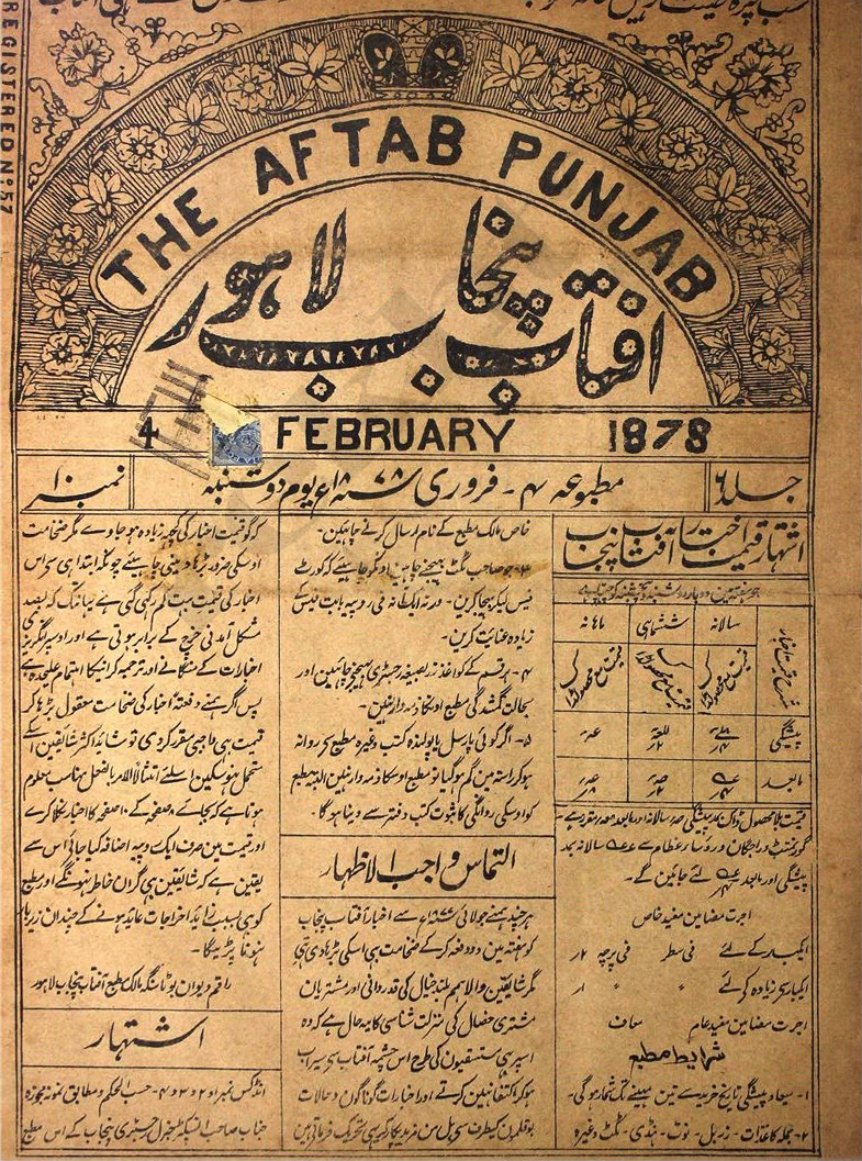 REGISTERED Nº 57
THE AFTAB PUNJAB
افتاب پنجاب لاہور
4 FEBRUARY 1878
جلد ٦
مطبوعہ ۴ - فروری ۱۸۷۸ء یوم دوشنبہ
نمبر ۱۰
اشتہار قیمت اخبار آفتاب پنجاب
سالانہ
ششماہی
ماہانہ
پیشگی
مابعد
قیمت بلا محصول ڈاک
گورنمنٹ و راجگان و روسار عظام سے سالانہ بمد
پیشگی اور مابعد لئے جائیں گے ۔
اجرت مضامین مفید خاص
ایکبار کے لئے فی سطر فی پرچہ ۲ر
ایکبار سے زیادہ کے لئے ۱ر
اجرت مضامین مفید عام معاف
شرایط مطبع
۱ - میعاد پیشگی تاریخ خرید سے تین مہینے تک شمار ہوگی ۔
۲ - جملہ کاغذات - زربل - نوٹ - ہنڈی - ٹکٹ وغیرہ
خاص مالک مطبع کے نام ارسال کرنے چاہئین ۔
۳ - جو صاحب ٹکٹ بھیجنے چاہین اونکو چاہیئے کہ کورٹ
فیس ٹیکٹ بھیجا کرین - ورنہ ایک آنہ فی روپیہ بابت فیس کے
زیادہ عنایت کرین ۔
۴ - ہر قسم کے کواغذ زر بصیغہ رجسٹری بھیجے جائین اور
بحالت گمشدگی مطبع اونکا ذمہ دار نہین ۔
۵ - اگر کوئی پارسل یا پولندہ کتب وغیرہ مطبع سے روانہ
ہو کر راستہ مین گم ہو گیا تو مطبع اوسکا ذمہ دار نہین البتہ مطبع
کو اوسکی روانگی کا ثبوت کتب دفتر سے دینا ہوگا ۔
التماس واجب الاظہار
ہر چند ہمنے جولائی سے اخبار آفتاب پنجاب
کو ہفتہ مین دو دفعہ کرکے ضخامت ہی اسکی بڑہا دی ہے
مگر شایقین والا ہمم بلند خیال کی قدردانی اور مشتریان
مشتری خصال کی منزلت شناسی کا یہ حال ہے کہ وہ
اس چشمہ آفتاب سے سیراب
ہو کر اکتفا نہین کرتے اور اخبارات گوناگون و حالات
کہ گو قیمت اخبار کی کچہہ زیادہ ہو جاوے مگر ضخامت
اوسکی ضرور بڑہا دینی چاہیئے چونکہ ابتدا ہی سے اس
اخبار کی قیمت بہت کم رکہی گئی ہے یہانتک کہ بصد
مشکل آمدنی خرچ کے برابر ہوتی ہے اور اوسپر انگریزی
اخبارات کے منگانے اور ترجمہ کرانیکا اہتمام علیحدہ ہے
پس اگر ہمنے دفعتہً اخبار کی ضخامت معقول بڑہا کر
قیمت ہی واجبی مقرر کردی تو شاید اکثر شایقین اسکے
متحمل نہو سکین اسلئے امتثالاً للامر بالفعل مناسب معلوم
ہوتا ہے کہ بجائے ۸ صفحہ کے ۱۰ صفحہ کا اخبار نکلا کرے
اور قیمت مین صرف ایک روپیہ اضافہ کیا جاے اس سے
یقین ہے کہ شایقین ہی گران خاطر نہونگے اور مطبع
کو ہی بسبب زاید اخراجات عاید ہونے کے چندان زیربار
ہونا پڑیگا ۔
راقم دیوان بوٹا سنگہ مالک مطبع آفتاب پنجاب لاہور
اشتہار
انڈکس نمبر ۱ و ۲ و ۳ و ۴ - حسب الحکم و مطابق نمونہ مجوزہ
جناب صاحب انسپکٹر جنرل رجسٹری پنجاب کے اس مطبع